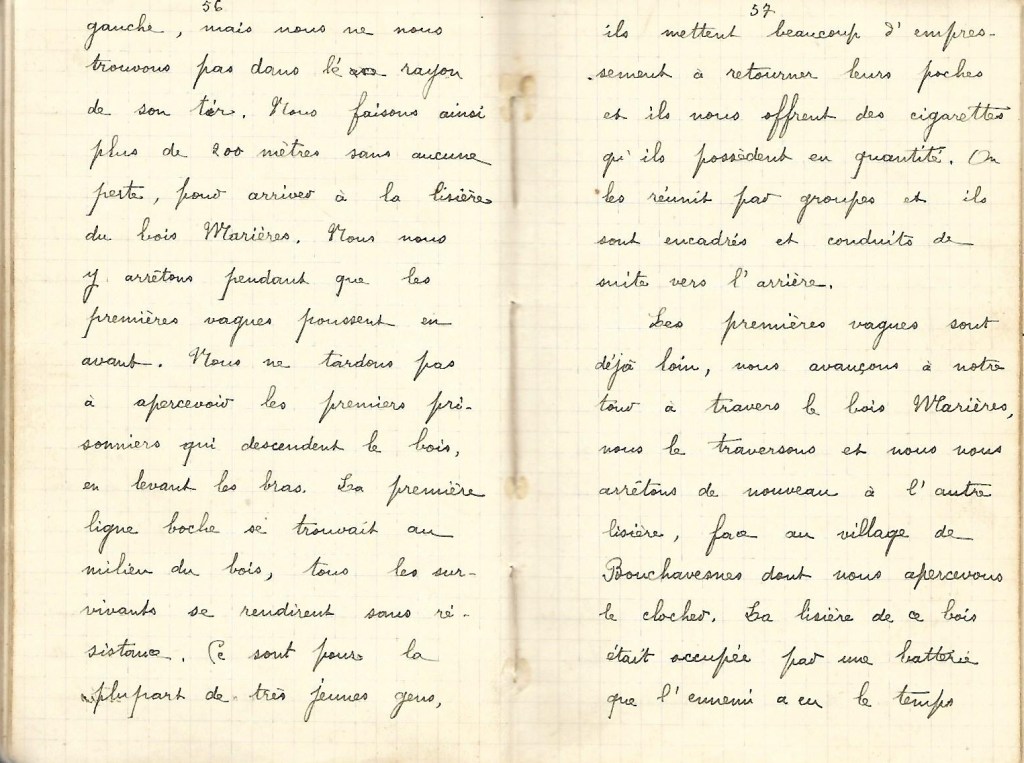 56
gauche, mais nous ne nous
trouvons pas dans le rayon
de son tir. Nous faisons ainsi
plus de 200 mètres sans aucune
perte, pour arriver à la lisière
du bois Marières. Nous nous
y arrêtons pendant que les
premières vagues poussent en
avant. Nous ne tardons pas
à apercevoir les premiers pri-
sonniers qui descendent le bois,
en levant les bras. La première
ligne boche se trouvait au
milieu du bois, tous les sur-
vivants se rendirent sans ré-
sistance. Ce sont pour la
plupart de très jeunes gens,
57
ils mettent beaucoup d'empres-
sement à retourner leurs poches
et ils nous offrent des cigarettes
qu'ils possèdent en quantité. On
les réunit par groupes et ils
sont encadrés et conduits de
suite vers l'arrière.
Les premières vagues sont
déjà loin, nous avançons à notre
tour à travers le bois Marières,
nous le traversons et nous nous
arrêtons de nouveau à l'autre
lisière, face au village de
Bouchavesnes dont nous apercevons
le clocher. La lisière de ce bois
était occupée par une batterie
que l'ennemi a eu le temps